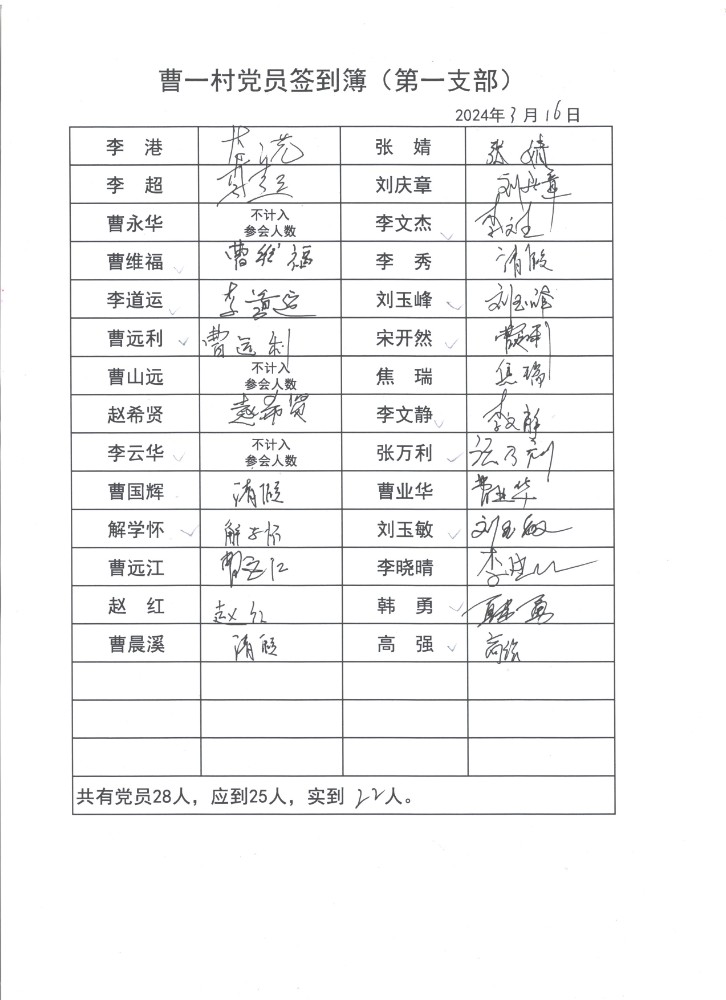 曹一村党员签到簿（第一支部）
2024年3月16日
李 港 李港 张 婧 张婧
李 超 李超 刘庆章 刘庆章
曹永华 不计入 李文杰 李文杰
参会人数
曹维福 曹维福 李 秀 请假
李道运 李道运 刘玉峰 刘玉峰
曹远利 曹远利 宋开然
曹山远 不计入 焦 瑞 焦瑞
参会人数
赵希贤 赵希贤 李文静 李文静
李云华 不计入 张万利 张万利
参会人数
曹国辉 请假 曹业华 曹业华
解学怀 解学怀 刘玉敏 刘玉敏
曹远江 曹远江 李晓晴 李
赵 红 赵红 韩 勇 韩勇
曹晨溪 请假 高 强 高强
共有党员28人，应到25人，实到22人。